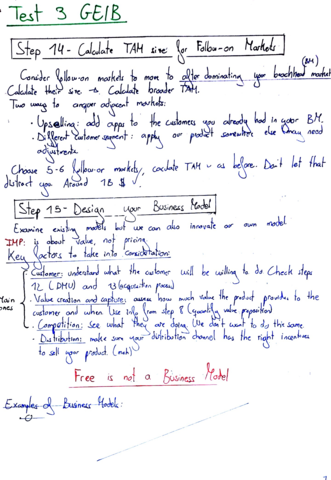 Test 3 GEIB
Step 14 - Calculate TAM size for Follow-on Markets
(BM)
Consider follow-on markets to move to after dominating your beachhead market
Calculate their size → Calculate broader TAM.
Two ways to conquer adjacent markets:
· Upselling: add apps to the customers you already had in your BM.
· Different customer segment: apply our product somewhere else (may need
adjustments.
Choose 5-6 follow-on markets, calculate TAM as before. Don't let that
distract you. Around 1B $
Step 15 - Design your Business Model
Examine existing models but we can also innovate or own model
IMP: is about value, not pricing
Key factors to take into consideration:
· Customer: understand what the customer will be willing to do. Check steps
12 (DMU) and 13 (acquisition process)
Main
ones
· Value creation and capture: assess how much value the product provides to the
customer and when. Use info from step 8 (quantify value proposition)
· Competition: See what they are doing (We don't want to do this same
· Distribution: make sure your distribution channel has the right incentives
to sell your product.
Free is not a Business Model
Examples of Business Models: